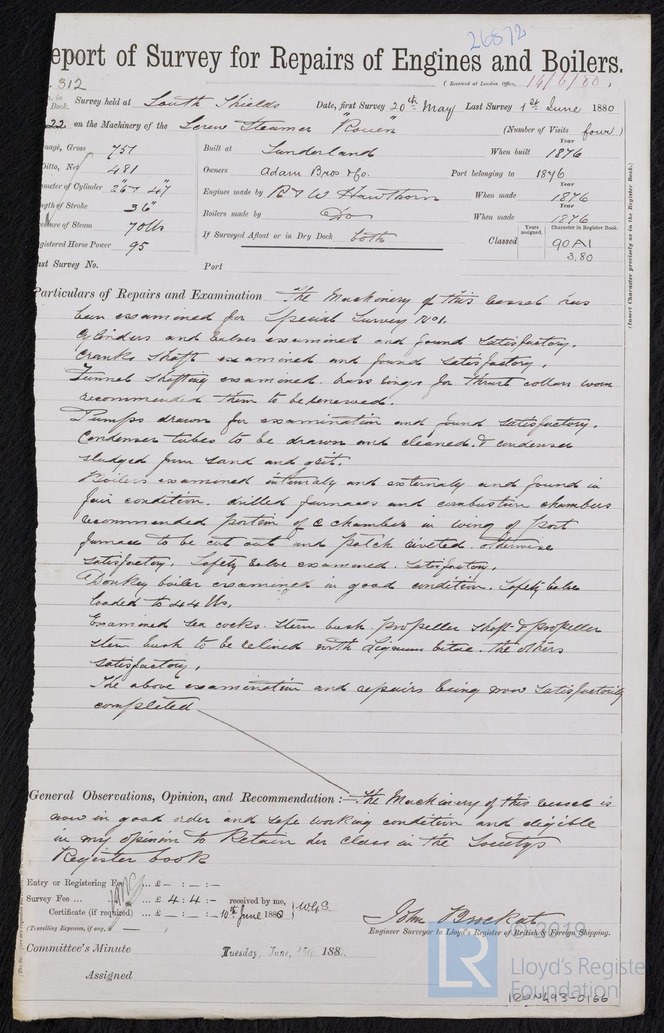 26872
eport of Survey for Repairs of Engines and Boilers.
312
(Received at London Office, 16/6/80.
Book. Survey held at South Shields Date, first Survey 20th May Last Survey 1st June 1880
22 on the Machinery of the Screw Steamer "Rouen" (Number of Visits four)
nage, Gross 757 Built at Sunderland When built 1876
Ditto, Net 481 Owners Adam Bros & Co. Port belonging to 1876
meter of Cylinder 26" & 47" Engines made by R & W Hawthorn When made 1876
gth of Stroke 36" Boilers made by Do When made 1876
sure of Steam 70 lbs If Surveyed Afloat or in Dry Dock both Classed Years assigned. Character in Register Book. 90 A1
gistered Horse Power 95 3,80
ast Survey No. Port
(Insert Character precisely as in the Register Book.)
Particulars of Repairs and Examination The Machinery of this vessel has
been examined for Special Survey No 1.
Cylinders and valves examined and found satisfactory.
Cranks Shaft examined and found satisfactory.
Tunnel Shafting examined. brass rings for thrust collars worn
recommended them to be renewed.
Pumps drawn for examination and found satisfactory.
Condenser tubes to be drawn and cleaned. & condenser
sludged from sand and grit.
Boilers examined internaly and externaly and found in
fair condition. drilled furnaces and combustion chambers
recommended portion of C chamber in wing of port
furnace to be cut out and patch riveted. otherwise
satisfactory. Safety valve examined. Satisfactory.
Donkey boiler examined in good condition. Safety valve
loaded to 44 lbs.
Examined sea cocks. Stern bush. propeller shaft & propeller
Stern bush to be relined with Lignum vitae. the others
satisfactory.
The above examination and repairs being now satisfactorily
completed
General Observations, Opinion, and Recommendation:— The Machinery of this vessel is
now in good order and safe working condition and eligible
in my opinion to Retain her class in the Societys
Register book
Entry or Registering Fee ... £ — : — : —
Survey Fee ... ... £ 4 : 4 : — received by me,
Certificate (if required) ... — : — : — 10th June 1880 W.G.S.
(Travelling Expenses, if any, £ — )
John Brockat
Engineer Surveyor to Lloyd's Register of British & Foreign Shipping.
Committee's Minute Tuesday, June, 15th 188
Assigned
© 2019
LR
Lloyd's Register
Foundation
IRON493-0166